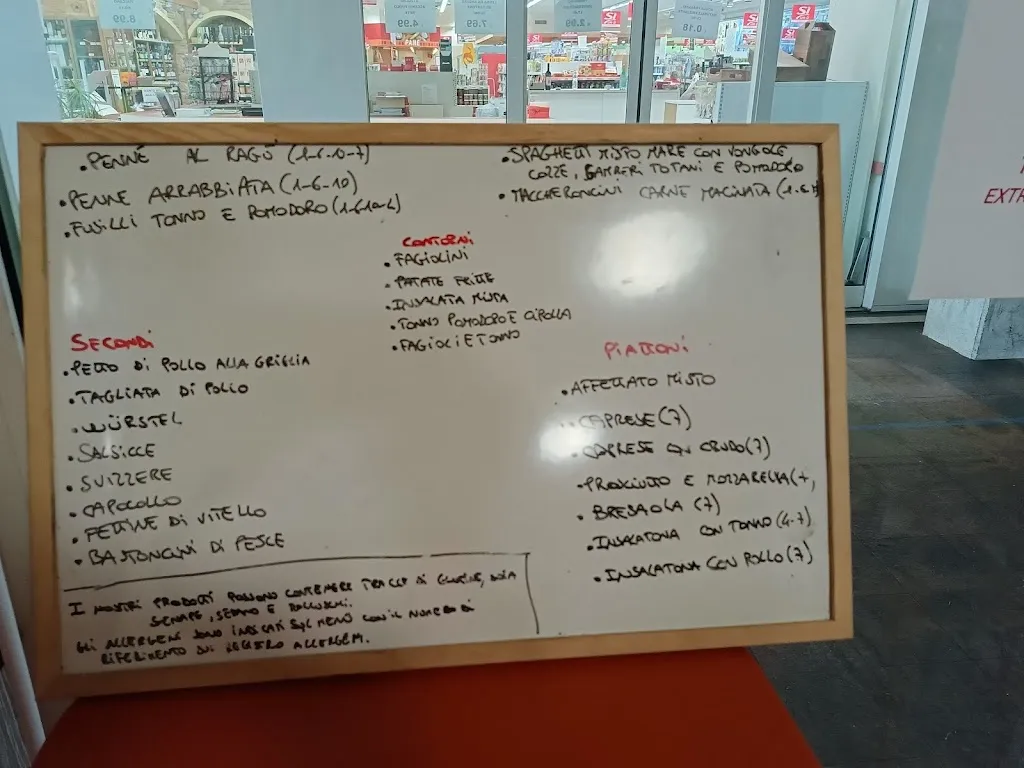 8.99
4.99
7.99
2.99
0.18
SÌ
SÌ
SÌ
EXTR
• PENNE AL RAGÙ (1-6-10-7)
• PENNE ARRABBIATA (1-6-10)
• FUSILLI TONNO E POMODORO (1-6-10-4)
• SPAGHETTI MISTO MARE CON VONGOLE
COZZE, GAMBERI TOTANI E POMODORO
• TACCHERONCINI CARNE MACINATA (1-6-
CONTORNI
• FAGIOLINI
• PATATE FRITTE
• INSALATA MISTA
• TONNO POMODORO E CIPOLLA
• FAGIOLI E TONNO
SECONDI
• PETTO DI POLLO ALLA GRIGLIA
• TAGLIATA DI POLLO
• WÜRSTEL
• SALSICCE
• SVIZZERE
• CAPOCOLLO
• FETTINE DI VITELLO
• BASTONCINI DI PESCE
PIATTONI
• AFFETTATO MISTO
• CAPRESE (7)
• CAPRESE CON CRUDO (7)
• PROSCIUTTO E MOZZARELLA (7,
• BRESAOLA (7)
• INSALATONA CON TONNO (4-7)
• INSALATONA CON POLLO (7)
I NOSTRI PRODOTTI POSSONO CONTENERE TRACCE DI GLUTINE, SOIA
SENAPE, SEDANO E MOLLUSCHI.
GLI ALLERGENI SONO INDICATI SUL MENÙ CON IL NUMERO DI
RIFERIMENTO DEL REGISTRO ALLERGENI.